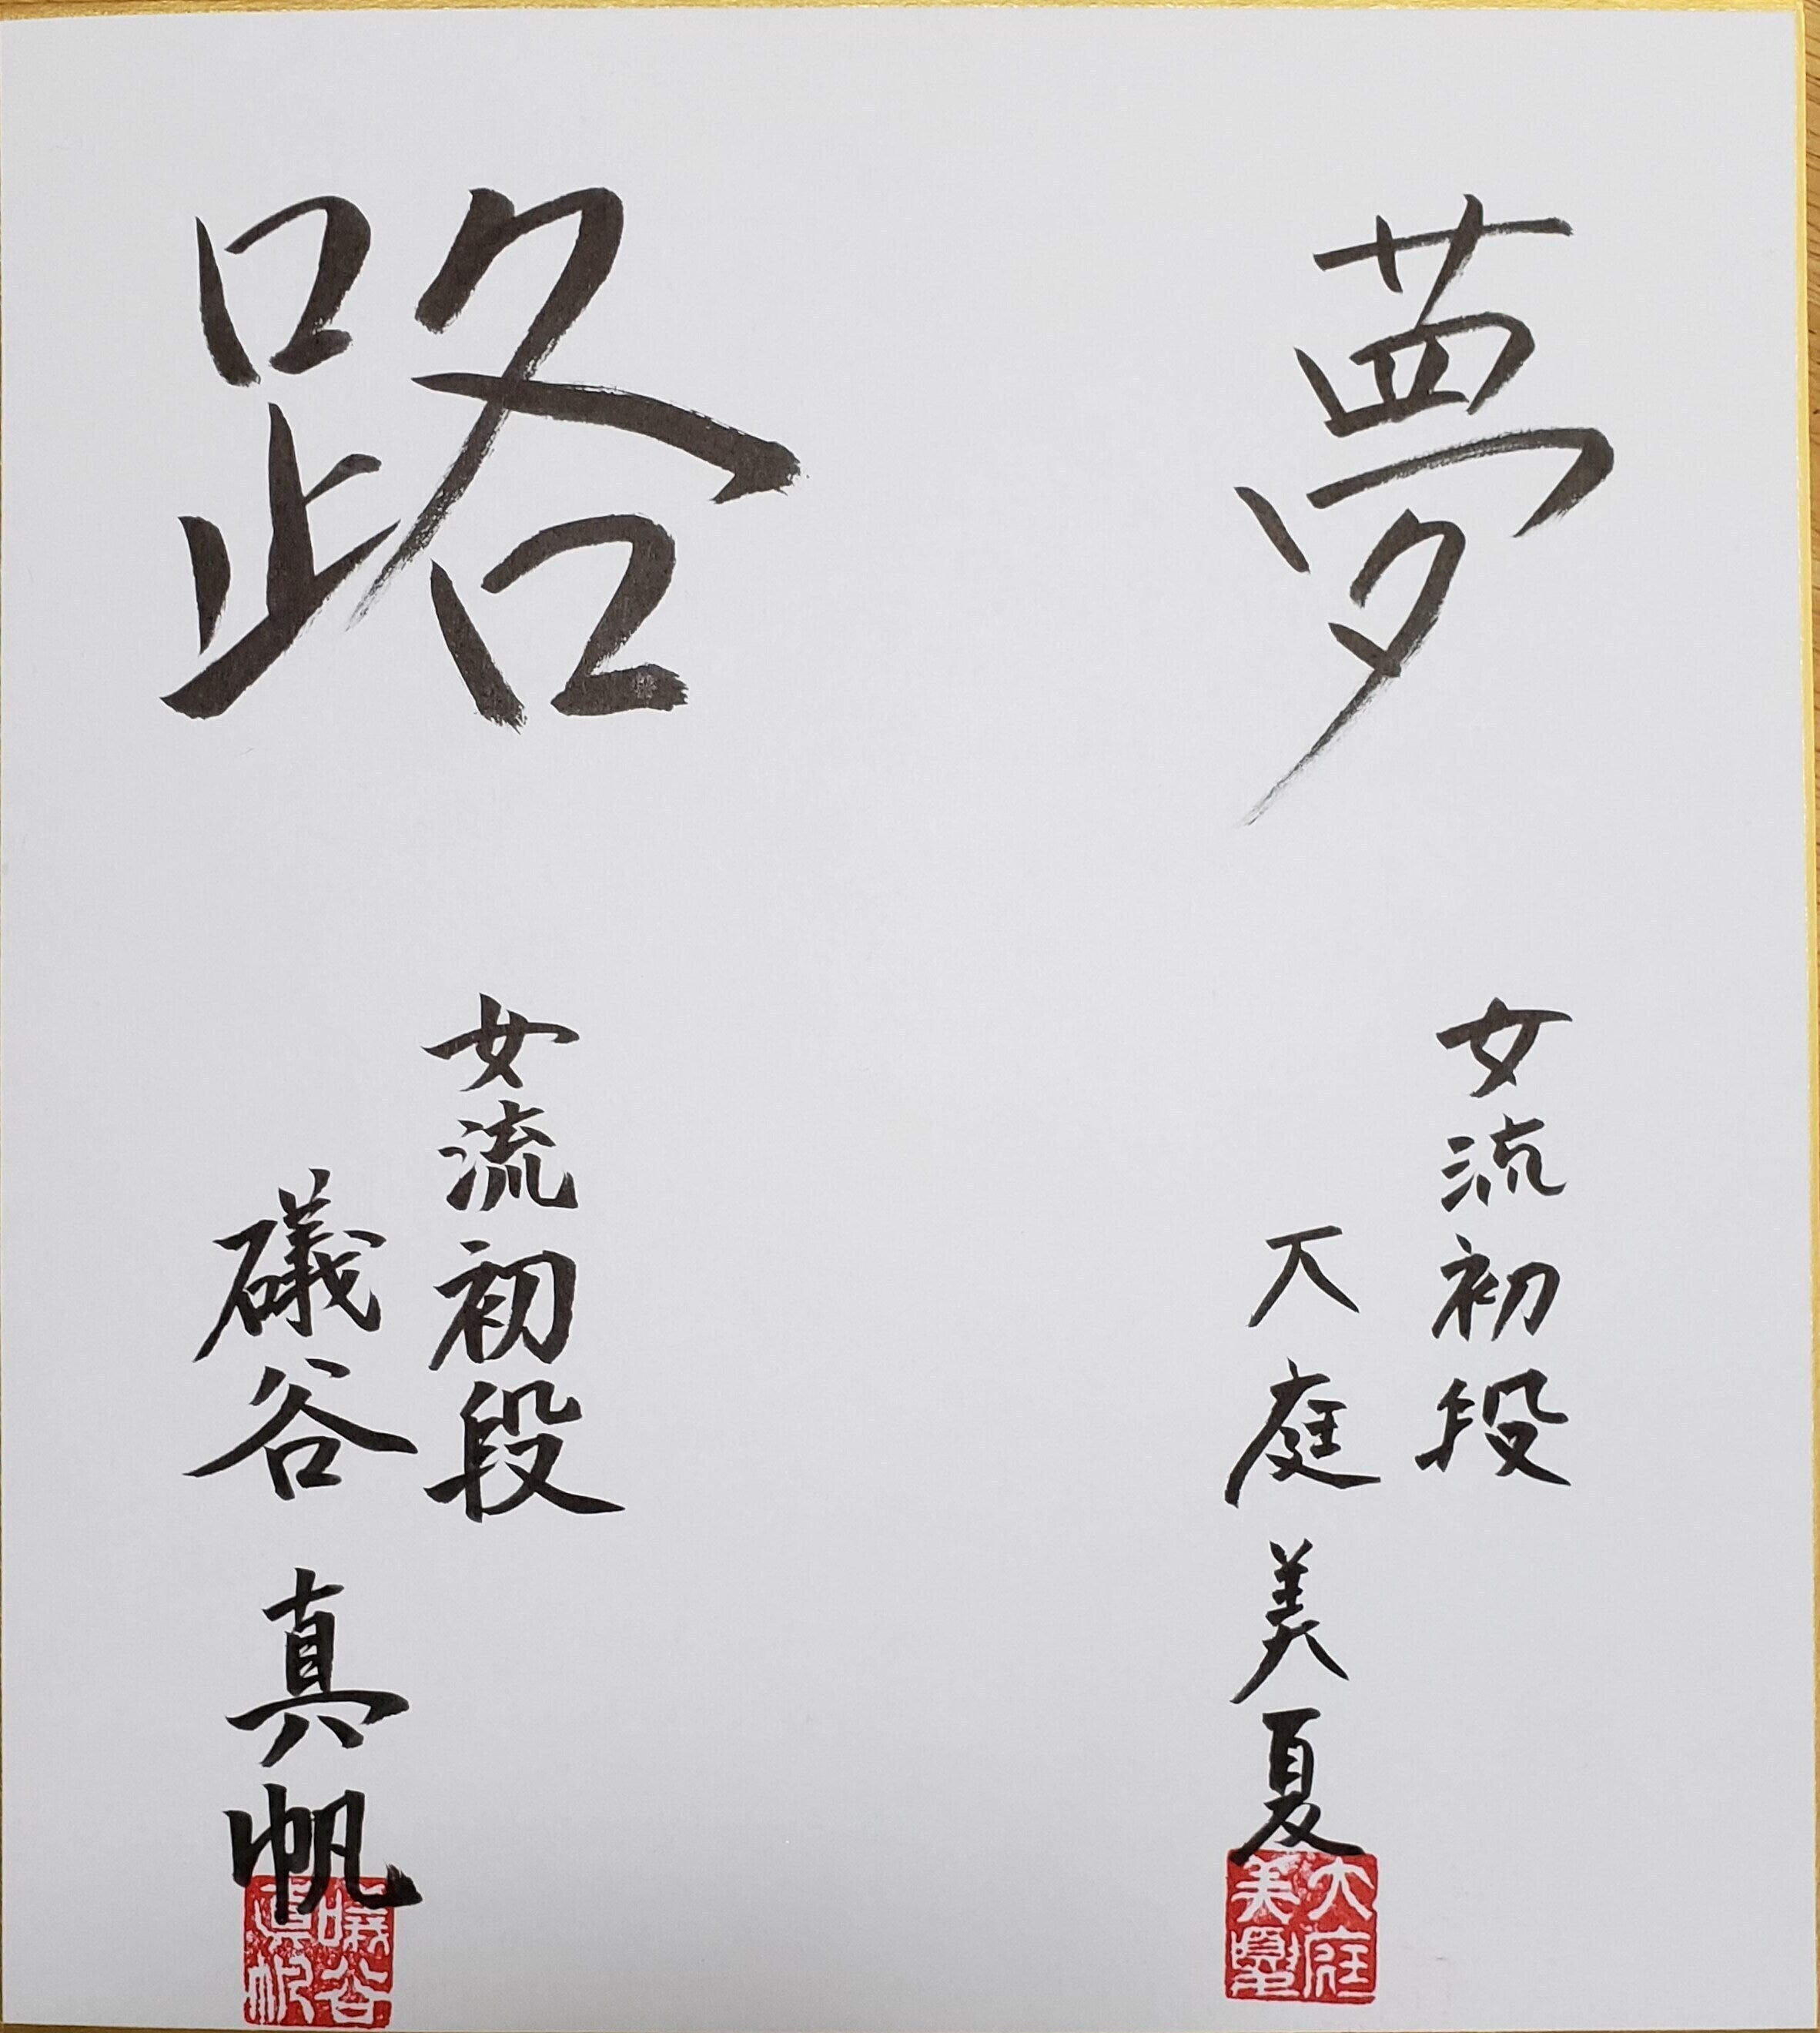 夢
女流初段
大庭美夏
大庭美夏
路
女流初段
礒谷真帆
礒谷眞帆